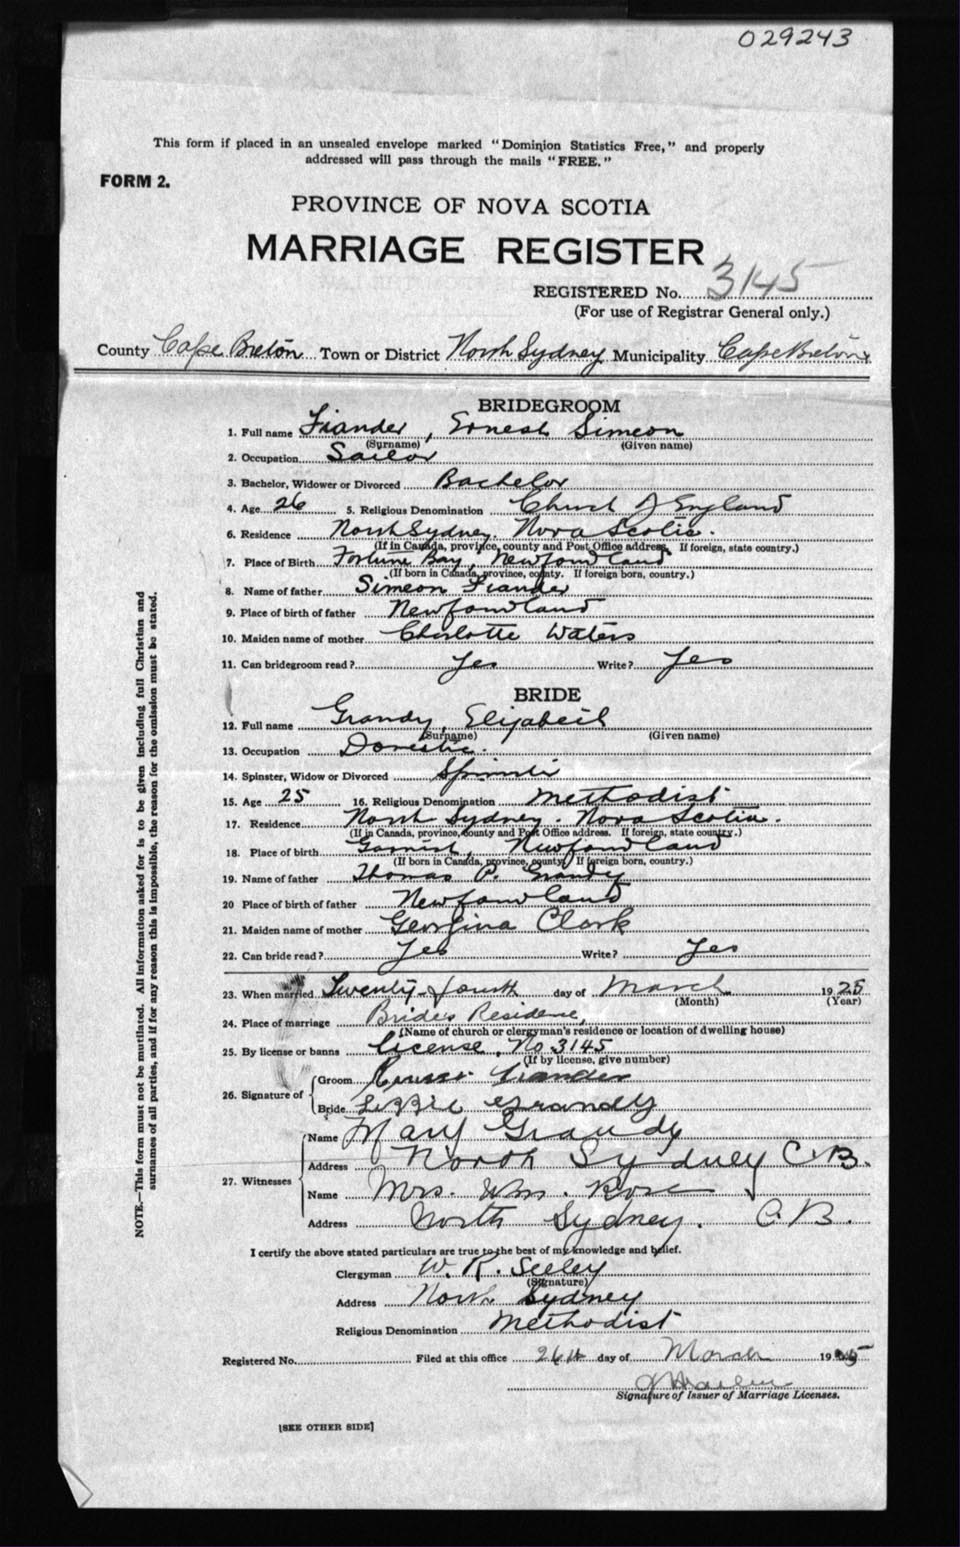 029243
This form if placed in an unsealed envelope marked "Dominion Statistics Free," and properly
addressed will pass through the mails "FREE."
FORM 2.
PROVINCE OF NOVA SCOTIA
MARRIAGE REGISTER
REGISTERED No. 3145
(For use of Registrar General only.)
County Cape Breton Town or District North Sydney Municipality Cape Breton
BRIDEGROOM
1. Full name Fiander, Ernest Simeon
(Surname) (Given name)
2. Occupation Sailor
3. Bachelor, Widower or Divorced Bachelor
4. Age 26 5. Religious Denomination Church of England
6. Residence North Sydney. Nova Scotia.
(If in Canada, province, county and Post Office address. If foreign, state country.)
7. Place of Birth Fortune Bay, Newfoundland
(If born in Canada, province, county. If foreign born, country.)
8. Name of father Simeon Fiander
9. Place of birth of father Newfoundland
10. Maiden name of mother Charlotte Waters
11. Can bridegroom read? Yes Write? Yes
BRIDE
12. Full name Grandy, Elizabeth
(Surname) (Given name)
13. Occupation Domestic.
14. Spinster, Widow or Divorced Spinster
15. Age 25 16. Religious Denomination Methodist
17. Residence North Sydney. Nova Scotia.
(If in Canada, province, county and Post Office address. If foreign, state country.)
18. Place of birth Garnish, Newfoundland
(If born in Canada, province, county. If foreign born, country.)
19. Name of father Thomas P. Grandy
20 Place of birth of father Newfoundland
21. Maiden name of mother Georgina Clark
22. Can bride read? Yes Write? Yes
23. When married Twenty-fourth day of March 1925
(Month) (Year)
24. Place of marriage Brides Residence,
(Name of church or clergyman's residence or location of dwelling house)
25. By license or banns license, No 3145
(If by license, give number)
26. Signature of Groom Ernest Fiander
Bride Lizzie Grandy
27. Witnesses
Name Mary Grandy
Address North Sydney C.B.
Name Mrs. Wm. Rose
Address North Sydney. C.B.
I certify the above stated particulars are true to the best of my knowledge and belief.
Clergyman W. R. Seeley
(Signature)
Address North Sydney
Religious Denomination Methodist
Registered No. Filed at this office 26th day of March 1925
Signature of Issuer of Marriage Licenses.
[SEE OTHER SIDE]
NOTE.—This form must not be mutilated. All information asked for is to be given including full Christian and
surnames of all parties, and if for any reason this is impossible, the reason for the omission must be stated.